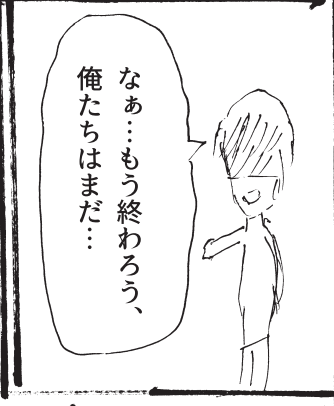 なぁ…もう終わろう、
俺たちはまだ…